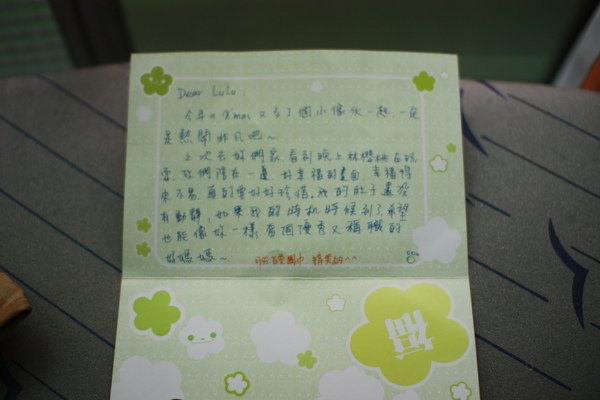 Dear Lulu:
今年の X'mas 又多了個小傢伙一起,一定
是熱鬧非凡吧~
上次去妳們家,看到晚上林櫻桃在玩
耍,你們陪在一邊,好幸福的畫面,幸福得
來不易,真的要好好珍惜。我的肚子還沒
有動靜,如果我的時机時候到了,希望
也能像妳一樣有個優秀又稱職的
好媽媽~
福